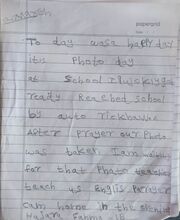 To day was a happy day
it is photo day
at School I luckyly got
ready Reached school
by auto rickhawe
After prayer our Photo
was taken I am waiting
for that Photo teacher
teach us Englis Prayer
cam home in the